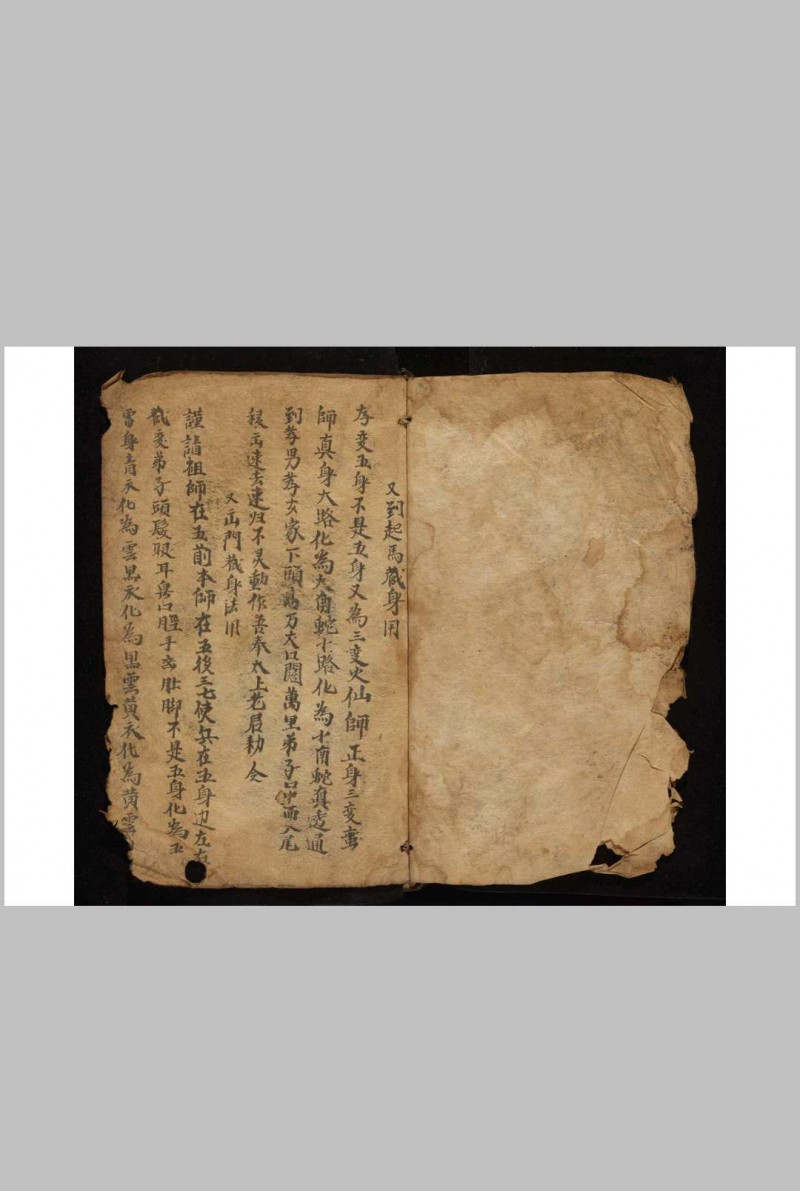 又到起馬藏身用
存变五身不是五身又為三变火仙師正身三变蛮
師真身大路化為大南蛇小路化為小南蛇真透通
到孝男孝女家下頭為万大口闊萬里弟子口中西入尾
後出速去速归不灵動作善奉太上老君勅令
又出門藏身法用
謹請祖師在五前本師在五後三七使兵在五身边左右
藏变弟子頭髮眼耳鼻口胵手 肚脚不是五身化為五
雷身青衣化為雲黑衣化為黑雲黄衣化為黄雲